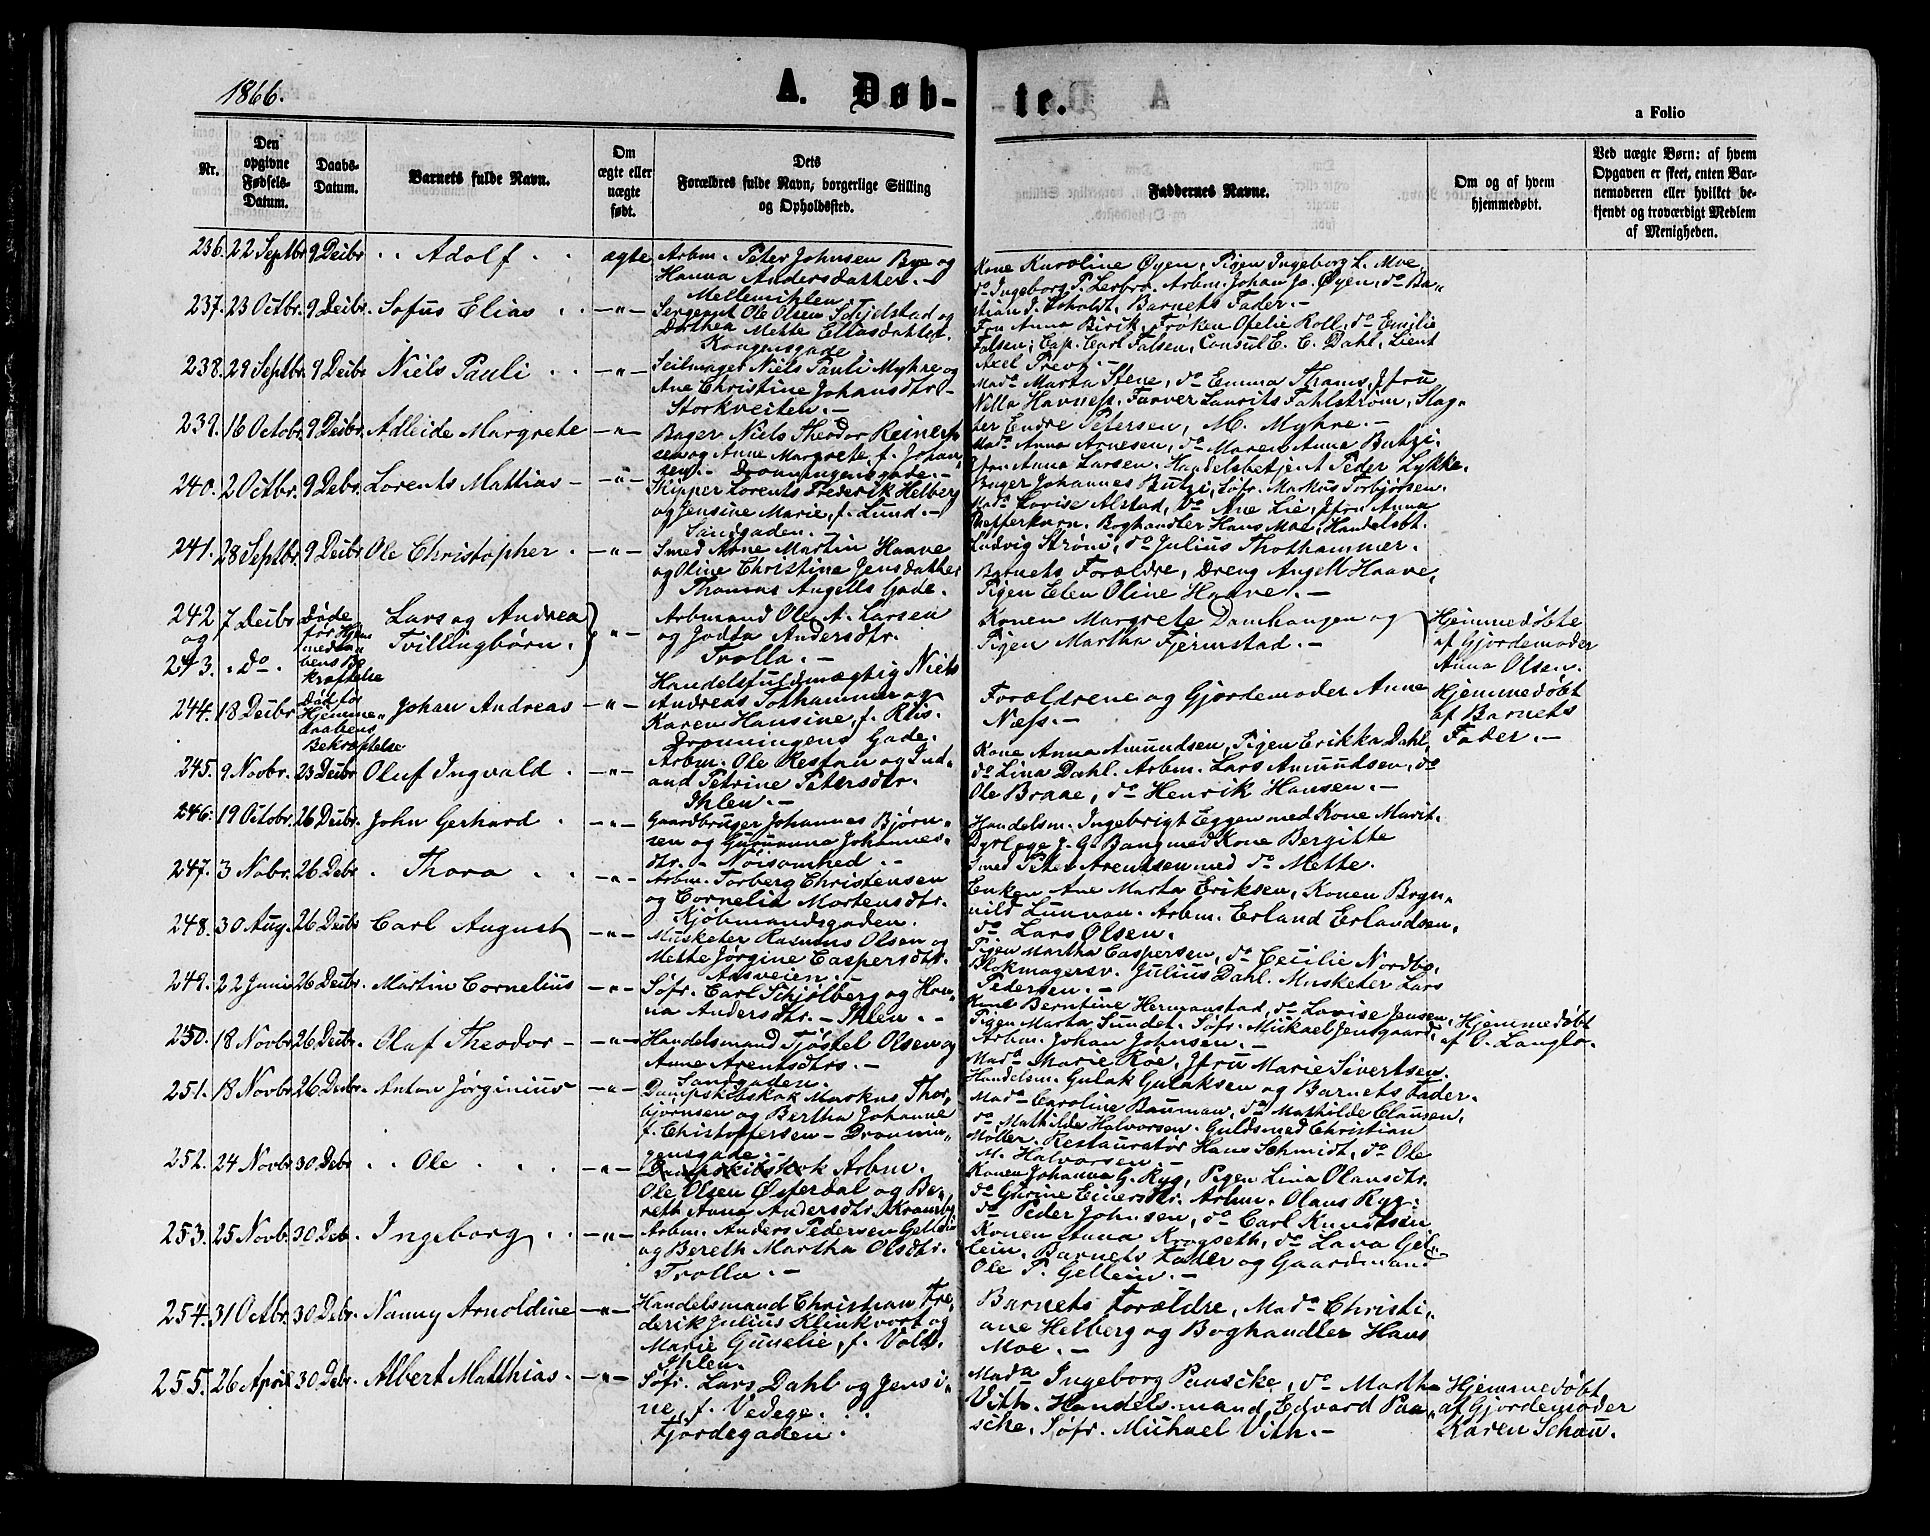 1866.
A. Døb-
te.
a Folio
Nr.
Den opgivne Fødsels-Datum.
Daabs-Datum.
Barnets fulde Navn.
Om ægte eller uægte født.
Dets Forældres fulde Navn, borgerlige Stilling og Opholdssted.
Faddernes Navne.
Om og af hvem hjemmedøbt.
Ved uægte Børn: af hvem Opgaven er skeet, enten Barnemoderen eller hvilket bekjendt og troværdigt Medlem af Menigheden.
236. 22 Septbr 9 Deibr Adolf ægte
Arbm. Peter Johnsen Bye og
Hanna Andersdatter. -
Mellemihlen
Kone Karoline Øyen, Pigen Ingeborg L. Moe,
do Ingeborg P. Lerbro. Arbm. Johan Jo. Øyen, do Ba-
stian J. Barnets Fader. -
237. 23 Octbr. 9 Deibr. Sofus Elias - " -
Sergeant Ole Olsen Schjelstad og
Dorthea Mette Eliasdatter.
Kongensgade
Fru Anna Birik, Frøken Ofelie Roll, do Emilie
Falsen, Cap. Carl Falsen, Consul E. C. Dahl, Lieut
Axel
238. 29 Septbr. 9 Deibr Niels Pauli - " -
Seilmager Niels Pauli Myhre og
Ane Christine Johansdtr -
Storkveiten. -
Mada Marta Stene, do Emma Thams, Jfru
Nilla Havness, Farver Laurits Fahlstrøm, Slag-
ter Endre Petersen, M. Myhre. -
239. 16 Octobr. 9 Deibr. Adleide Margrete - " -
Bager Niels Theodor Reinert-
sen og Anne Margrete, f. Johan-
sen. - Dronningensgade. -
Mada Anna Arnesen, do Maren Anna Butzi.
Jfru Anna Larsen. Handelsbetjent Peder Lykke,
Bager Johannes Butzi, Søfr. Markus Torbjørsen.
240. 2 Octbr. 9 Debr. Lorents Mattias - - " -
Skipper Lorents Frederik Helberg
og Jensine Marie, f. Lund. -
Sandgaden. -
Mada Lovise Alstad, do Ane Lie, Jfru Anna
Boghandler Hans Moe, Handelsbt.
Ludvig Strøm, do Julius Thothammer.
241. 28 Septbr 9 Deibr Ole Christopher - " -
Smed Arne Martin Haave
og Oline Christine Jensdatter,
Thomas Angells Gade.
Barnets Forældre, Dreng Angell Haave,
Pigen Elen Oline Haave. -
242 og 243. 7 Deibr do
Døde før Hjemmedaabens Bekræftelse
Lars og Andrea
Tvillingbørn. - " -
Arbmand Ole A. Larsen
og Andersdtr.
Trolla. -
Konen Margrete Damhaugen og
Pigen Martha Fjermstad. -
Hjemmedøbte
af Gjordemoder
Anna Olsen.
244. 18 Deibr
Død før Hjemmedaabens Bekræftelse
Johan Andreas - " -
Handelsfuldmægtig Niels
Andreas Tothammer og
Karen Hansine, f. Riis.
Dronningens Gade.
Forældrene og Gjordemoder Anne
Næss. -
Hjemmedøbt
af Barnets
Fader. -
245. 9 Novbr. 23 Deibr Oluf Ingvald - " -
Arbm. Ole Restan og
Petrine Petersdtr.
Ihlen. -
Kone Anna Amundsen, Pigen Erikka Dahl,
do Lina Dahl. Arbm. Lars Amundsen, do
Ole Braae, do Henrik Hansen. -
246. 19 Octobr. 26 Deibr. John Gerhard - " -
Gaardbruger Johannes Bjørn-
sen og Gurianna Johannes-
dtr. - Nøisomhed. -
Handelsm. Ingebrigt Eggen med Kone Marit.
Dyrlæge J. G. Bang med Kone Bergitte
Smed Peter Arentsen med do Mette.
247. 3 Nobr. 26 Debr. Thora - " -
Arbm. Torberg Christensen
og Cornelia Mortensdtr.
Kjøbmandsgaden.
Enken Ane Marta Eriksen, Konen Bryn-
nild Lunnan. Arbm. Erland Erlandsen,
do Lars Olsen.
248. 30 Aug. 26 Deibr Carl August - " -
Musketer Rasmus Olsen og
Mette Jørgine Caspersdtr.
Aasveien. -
Pigen Martha Caspersen, do Cecilie Nordbø,
Blokmagersv. Julius Dahl. Musketer Lars
Pedersen. -
249. 22 Juni 26 Deibr. Martin Cornelius - " -
Søfr. Carl Schjølberg og Han-
na Andersdtr. - Ihlen. -
Kone Berntine Hermanstad, do Lovise Jensen,
Pigen Marta Sundet. Søfr. Mickael Jensgaard.
Arbm. Johan Johnsen. -
Hjemmedøbt
af O. Langlo.
250. 18 Novbr 26 Deibr. Olaf Theodor - - " -
Handelsmand Tjøstel Olsen og
Anne Arentsdtrs. -
Sandgaden.
Mada Marie Roe, Jfru Marie Sivertsen.
Handelsm. Gulak Gulaksen og Barnets Fader.
251. 18 Novbr 26 Deibr. Anton Jørginius - " -
Dampskibskok Markus Thor-
bjørnsen og Bertha Johanne
f. Christoffersen - Dronnin-
gensgade. -
Mada Caroline Bauman, do Mathilde Clausen,
do Mathilde Halvorsen. Guldsmed Christian
Møller. Restauratør Hans Schmidt, do Ole
M. Halvorsen. -
252. 24 Novbr 30 Debr Ole - " -
Dampskibskok Arbm.
Ole Olsen Østerdal og Be-
reth Anna Andersdtr.
Konen Johanna G. Ryg, Pigen Lina Olausdtr.
do Gurine Einersdtr. Arbm. Olaus Ryg.
do Peder Johnsen, do Carl Knudtsen
253. 25 Novb. 30 Deb. Ingeborg - " -
Arbm. Anders Pedersen Gellein
og Bereth Martha Olsdtr.
Trolla. -
Konen Anna Krogseth, do Lava Gel-
lein. Barnets Fader og Gaardmand
Ole P. Gellein. -
254. 31 Octbr. 30 Debr. Nanny Arnoldine - " -
Handelsmand Christian Fre-
derik Julius Klinkvort og
Marie Gunelie, f. Vold.
Ihlen.
Barnets Forældre, Mada Christi-
ane Helberg og Boghandler Hans
Moe. -
255. 26 April 30 Debr. Albert Matthias. - " -
Søfr. Lars Dahl og Jensi-
ne, f. Vedege.
Fjordegaden.
Mada Ingeborg Paascke, do Marth
Vith. Handelsmand Edvard Paa-
scke, Søfr. Michael Vith. -
Hjemmedøbt
af Gjordemoder
Karen Schau.